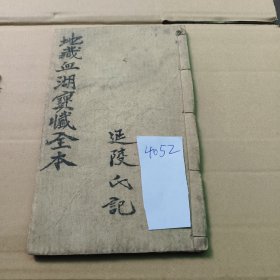 地藏血湖寶懺全本
延陵氏記
4052